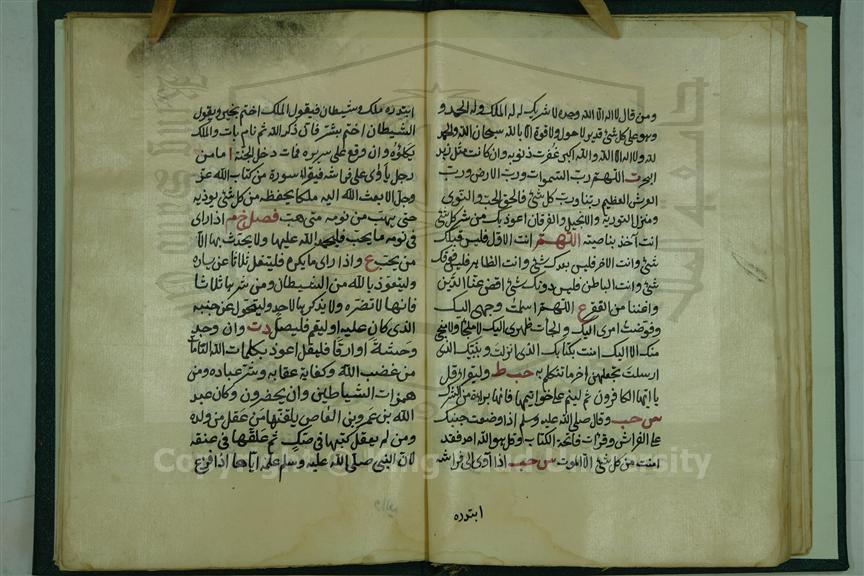 ومن قال لا اله الا الله وحده لا شريك له له الملك وله الحمد و
وهو على كل شئ قدير لا حول ولا قوة الا بالله سبحان الله والحمد
لله ولا اله الا الله والله اكبر غفرت ذنوبه وان كانت مثل زبد
البحر ت اللهم رب السموات ورب الارض ورب
العرش العظيم ربنا ورب كل شئ فالق الحب والنوى
ومنزل التورية والانجيل والفرقان اعوذ بك من شر كل شئ
انت آخذ بناصيته اللهم انت الاول فليس قبلك
شئ وانت الآخر فليس بعدك شئ وانت الظاهر فليس فوقك
شئ وانت الباطن فليس دونك شئ اقض عنا الدين
واغننا من الفقر ع اللهم اسلمت وجهى اليك
وفوضت امرى اليك والجات ظهرى اليك لا ملجا ولا منجى
منك الا اليك امنت بكتابك الذى انزلت ونبيك الذى
ارسلت يجعلهن اخر ما تتكلم به حب ط وليقرا قل
يا ايها الكافرون ثم لينم على خواتيمها فانها براءة من الشرك
س حب وقال صلى الله عليه وسلم اذا وضعت جنبك
على الفراش وقرات فاتحة الكتاب وقل هو الله احد فقد
امنت من كل شئ الا الموت س حب اذا آوى الى فراشه
ابتدره
ابتدره ملك وشيطان فيقول الملك اختم بخير ويقول
الشيطان اختم بشر فان ذكر الله ثم نام بات والملك
يكلؤه وان وقع على سريره فمات دخل الجنة ا ما من
رجل ياوى على فراشه فيقرا سورة من كتاب الله عز
وجل الا بعث الله اليه ملكا يحفظه من كل شئ يوذيه
حتى يهب من نومه متى هب فصل خ م اذا راى
فى نومه ما يحب فليحمد الله عليها ولا يحدث بها الا
من يحب ع واذا راى ما يكره فليتفل ثلاثا عن يساره
وليتعوذ بالله من الشيطان ومن شرها ثلاثا
فانها لا تضره ولا يذكرها لاحد وليتحول عن جنبه
الذى كان عليه او ليقم فليصل د ت وان وجد
وحشة او ارقا فليقل اعوذ بكلمات الله التامات
من غضب الله وعقابه وشر عباده ومن
همزات الشياطين وان يحضرون وكان عبد
الله بن عمرو بن العاص يلقنها من عقل من ولده
ومن لم يعقل كتبها فى صك ثم علقها فى عنقه
لان النبى صلى الله عليه وسلم علمه اياها اذا فزع
Copyright © King Saud University